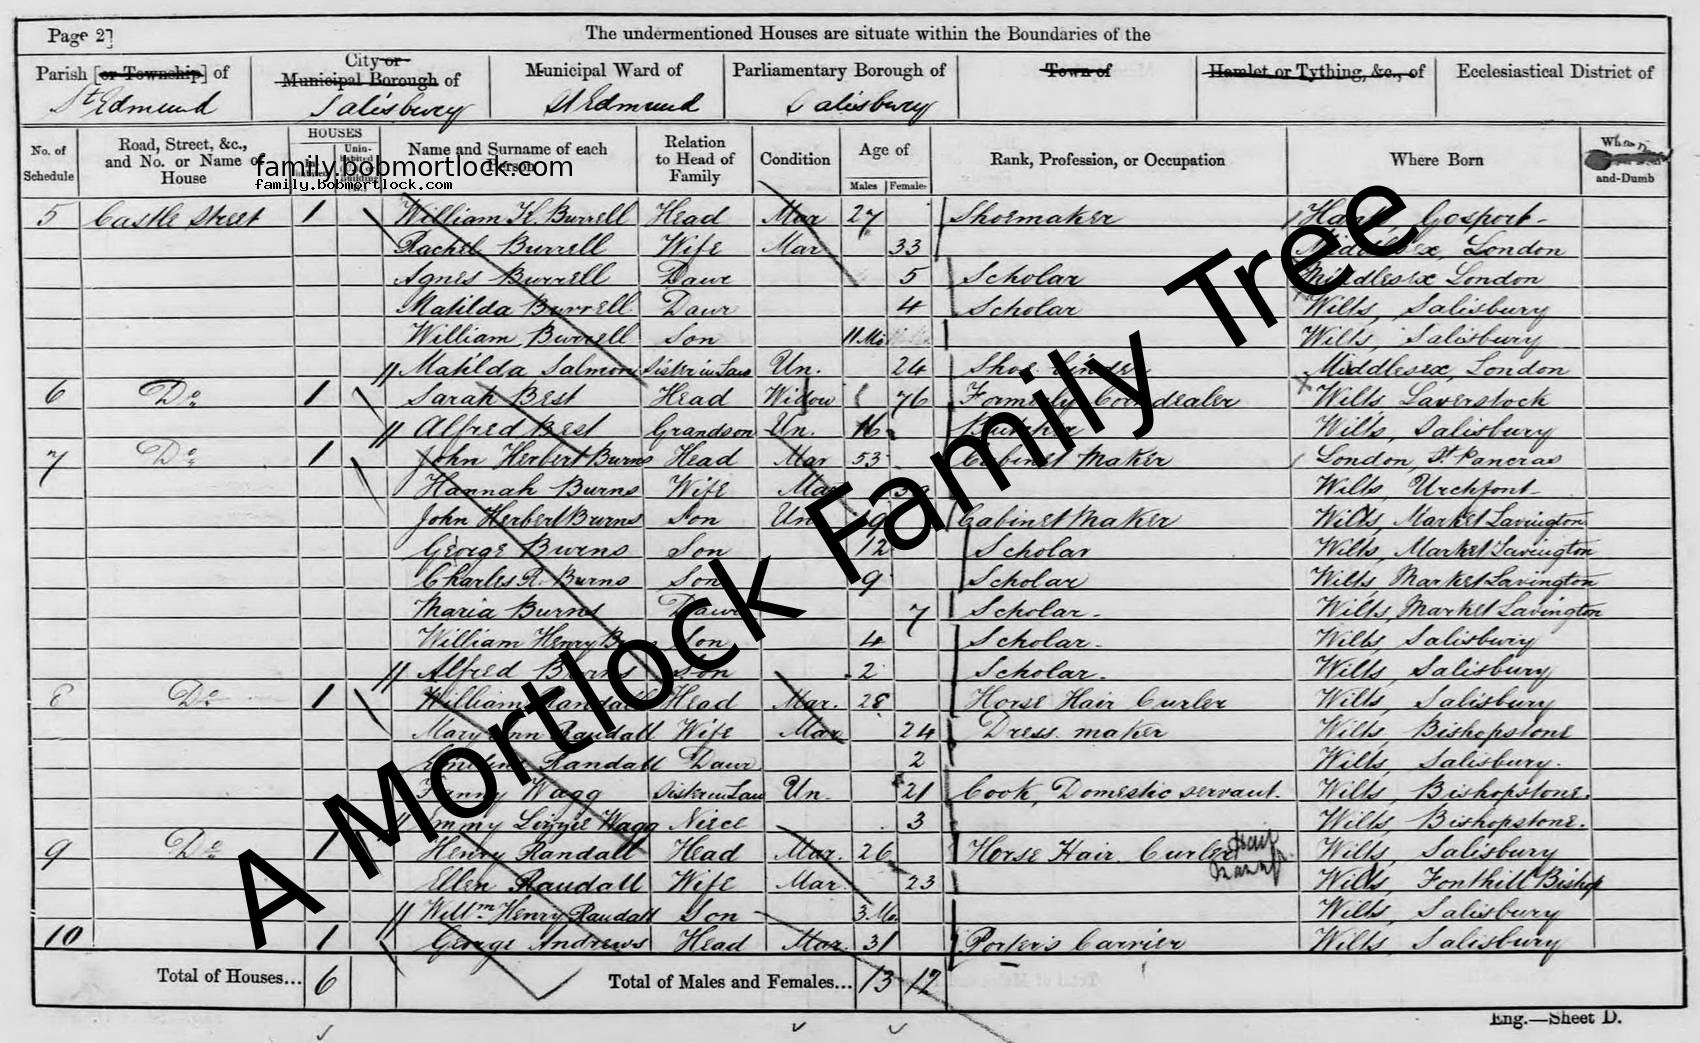 Page 27 The undermentioned Houses are situate within the Boundaries of the
Parish [or Township] of City or Municipal Borough of Municipal Ward of Parliamentary Borough of Town of Hamlet or Tything, &c., of Ecclesiastical District of
St Edmund Salisbury St Edmund Salisbury
No. of Schedule Road, Street, &c., and No. or Name of House HOUSES Name and Surname of each Person Relation to Head of Family Condition Age of Males Females Rank, Profession, or Occupation Where Born and-Dumb
family.bobmortlock.com
family.bobmortlock.com
5 Castle Street 1 William K. Burrell Head Mar 27 Shoemaker Gosport
Rachel Burrell Wife Mar 33 Middlesex, London
Agnes Burrell Daur 5 Scholar Middlesex London
Matilda Burrell Daur 4 Scholar Wilts, Salisbury
William Burrell Son 11 Mo Wilts, Salisbury
Matilda Salmon Sister in Law Un. 24 Shoe binder Middlesex, London
6 Do 1 Sarah Best Head Widow 76 Formerly Corndealer Wilts Laverstock
Alfred Best Grandson Un. 16 Wilts, Salisbury
7 Do 1 John Herbert Burns Head Mar 53 Cabinet Maker London, St Pancras
Hannah Burns Wife Mar Wilts, Urchfont
John Herbert Burns Son Un 19 Cabinet Maker Wilts, Market Lavington
George Burns Son 12 Scholar Wilts, Market Lavington
Charles R. Burns Son 9 Scholar Wilts, Market Lavington
Maria Burns Daur 7 Scholar Wilts, Market Lavington
William Henry Burns Son 4 Scholar Wilts, Salisbury
Alfred Burns Son 2 Scholar Wilts, Salisbury
8 Do 1 William Randall Head Mar. 28 Horse Hair Curler Wilts, Salisbury
Mary Ann Randall Wife Mar 24 Dress maker Wilts, Bishopstone
Emeline Randall Daur 2 Wilts, Salisbury.
Fanny Wagg Sister in Law Un. 21 Cook, Domestic servant. Wilts, Bishopstone.
Emmy Lizzie Wagg Niece 3 Wilts, Bishopstone.
9 Do 1 Henry Randall Head Mar. 26 Horse Hair Curler Hair Manuf Wilts, Salisbury
Ellen Randall Wife Mar. 23 Wilts, Fonthill Bishop
Willm Henry Randall Son 3 Mo Wilts, Salisbury
10 1 George Andrews Head Mar. 31 Porter's Carrier Wilts, Salisbury
Total of Houses... 6 Total of Males and Females... 13 12
Eng.—Sheet D.
A Mortlock Family Tree